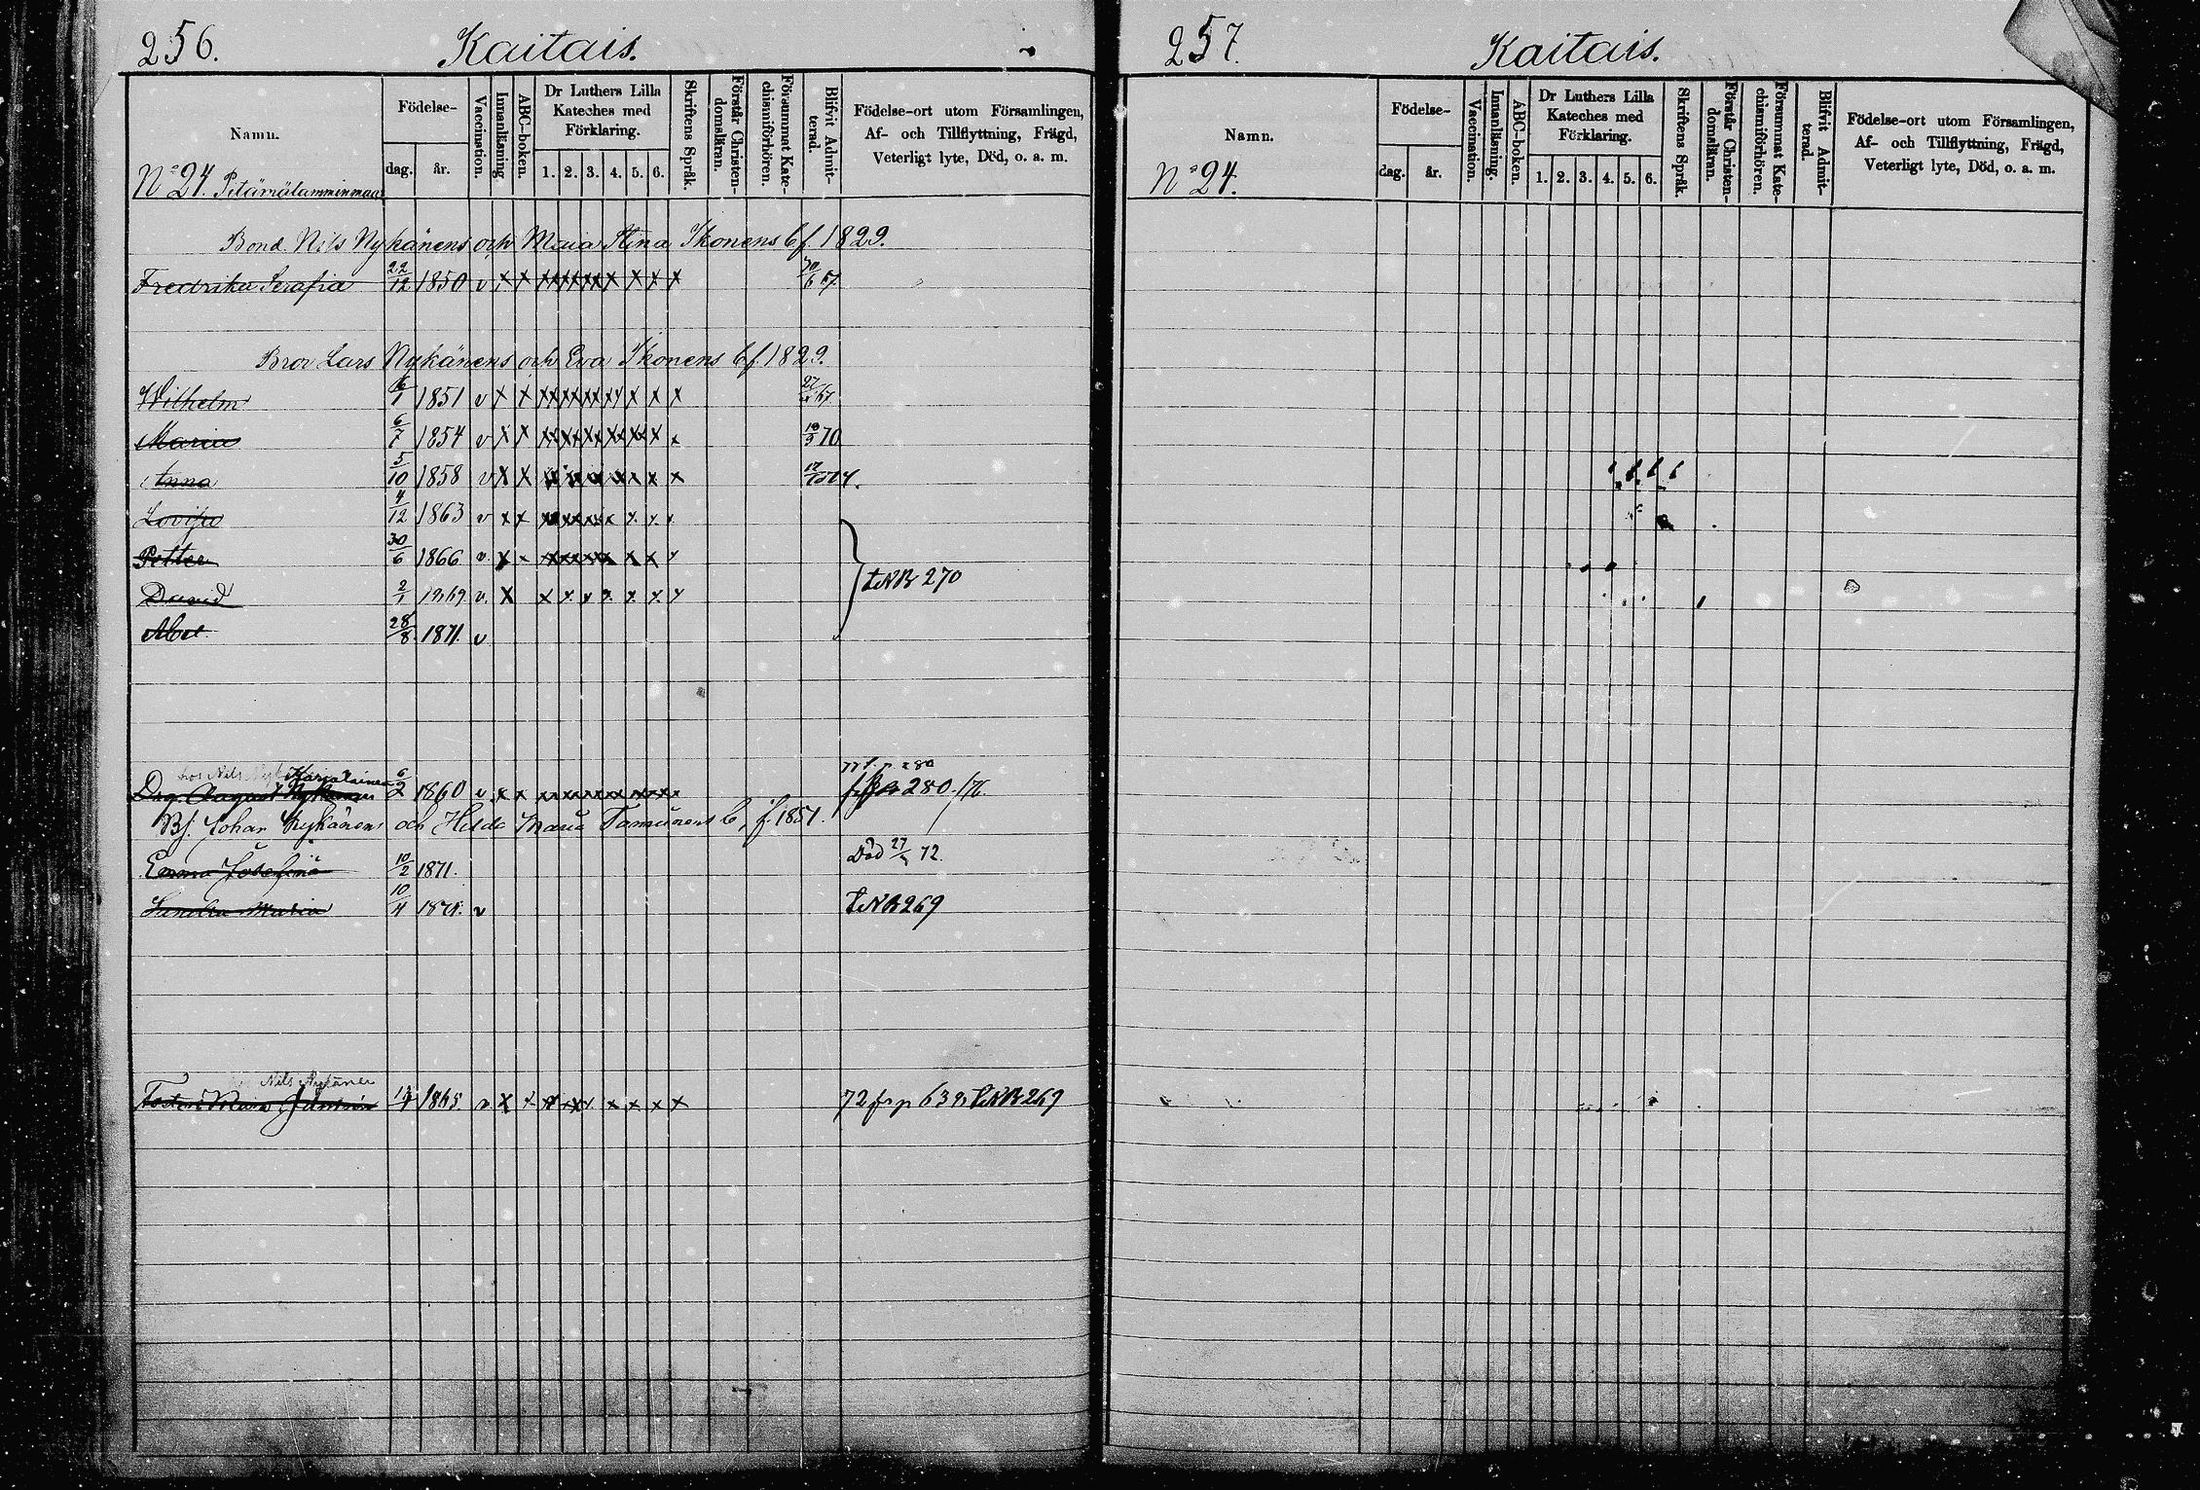 256. Kaitais.
Namn. Födelse- dag. år. Vaccination. Innanläsning. ABC-boken. Dr Luthers Lilla Kateches med Förklaring. 1. 2. 3. 4. 5. 6. Skriftens Språk. Förstår Christendomsläran. Försummat Katechismiförhören. Blifvit Admitterad. Födelse-ort utom Församlingen, Af- och Tillflyttning, Frägd, Veterligt lyte, Död, o. a. m.
No 24. Petäjälamminmaa
Bond. Nils Nykänens och Maia Stina Ikonens b f. 1829.
Fredrika Serafia 22/12 1850 v x x x x x x x x x 67.
Bror Lars Nykänens och Eva Ikonens b f. 1829.
Wilhelm 1851 v x x x x x x x x x 67
Maria 6/7 1854 v x x x x x x x x x 70
Anna 5/10 1858 v x x x x x x x x x
Lovisa 4/12 1863 v x x x x x x x x x
Petter 30/6 1866 v. x x x x x x x x x
David 2/1 1869 v. x x x x x x x x
t NB 270
Abel 28/8 1871. v
Karjalainen
Drg. August Nykänen 6/2 1860 v. x x x x x x x x x 280
Bf. Johan Nykänens och Helda Maria b, f. 1851.
Emma Josefina 10/2 1871. Död 27/ 72.
Maria 10/4 v t NB 269
Nils Nykänen
Maria 1865 v x x x x x x x x x 72 fr p 639 t NB 269
257. Kaitais.
Namn. Födelse- dag. år. Vaccination. Innanläsning. ABC-boken. Dr Luthers Lilla Kateches med Förklaring. 1. 2. 3. 4. 5. 6. Skriftens Språk. Förstår Christendomsläran. Försummat Katechismiförhören. Blifvit Admitterad. Födelse-ort utom Församlingen, Af- och Tillflyttning, Frägd, Veterligt lyte, Död, o. a. m.
No 24.